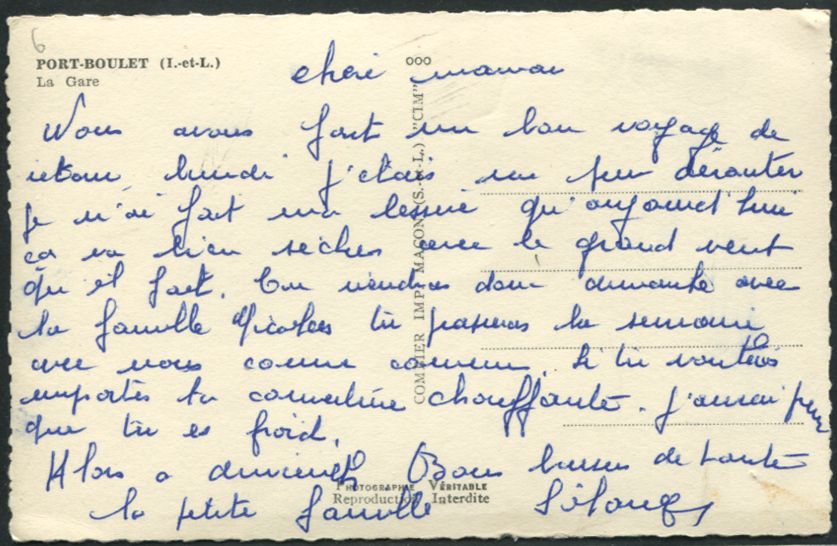 6
PORT-BOULET (I.-et-L.)
La Gare
ooo
COMBIER IMP. MACON (S.-et-L.) "CIM"
chéri maman
Nous avons fait un bon voyage de
retour lundi j'étais un peu dérouter
je n'ai fait ma lessive qu'aujourd'hui
ça va bien sécher avec le grand vent
qu'il fait. Tu viendras donc dimanche avec
la famille Nicolas tu passeras la semaine
avec nous comme convenu. Si tu voulais
emporter ta couverture chauffante. j'aurai peur
que tu es froid.
Alors a dimanche Bons baisers de toute
la petite famille Solange
PHOTOGRAPHIE VÉRITABLE
Reproduction Interdite